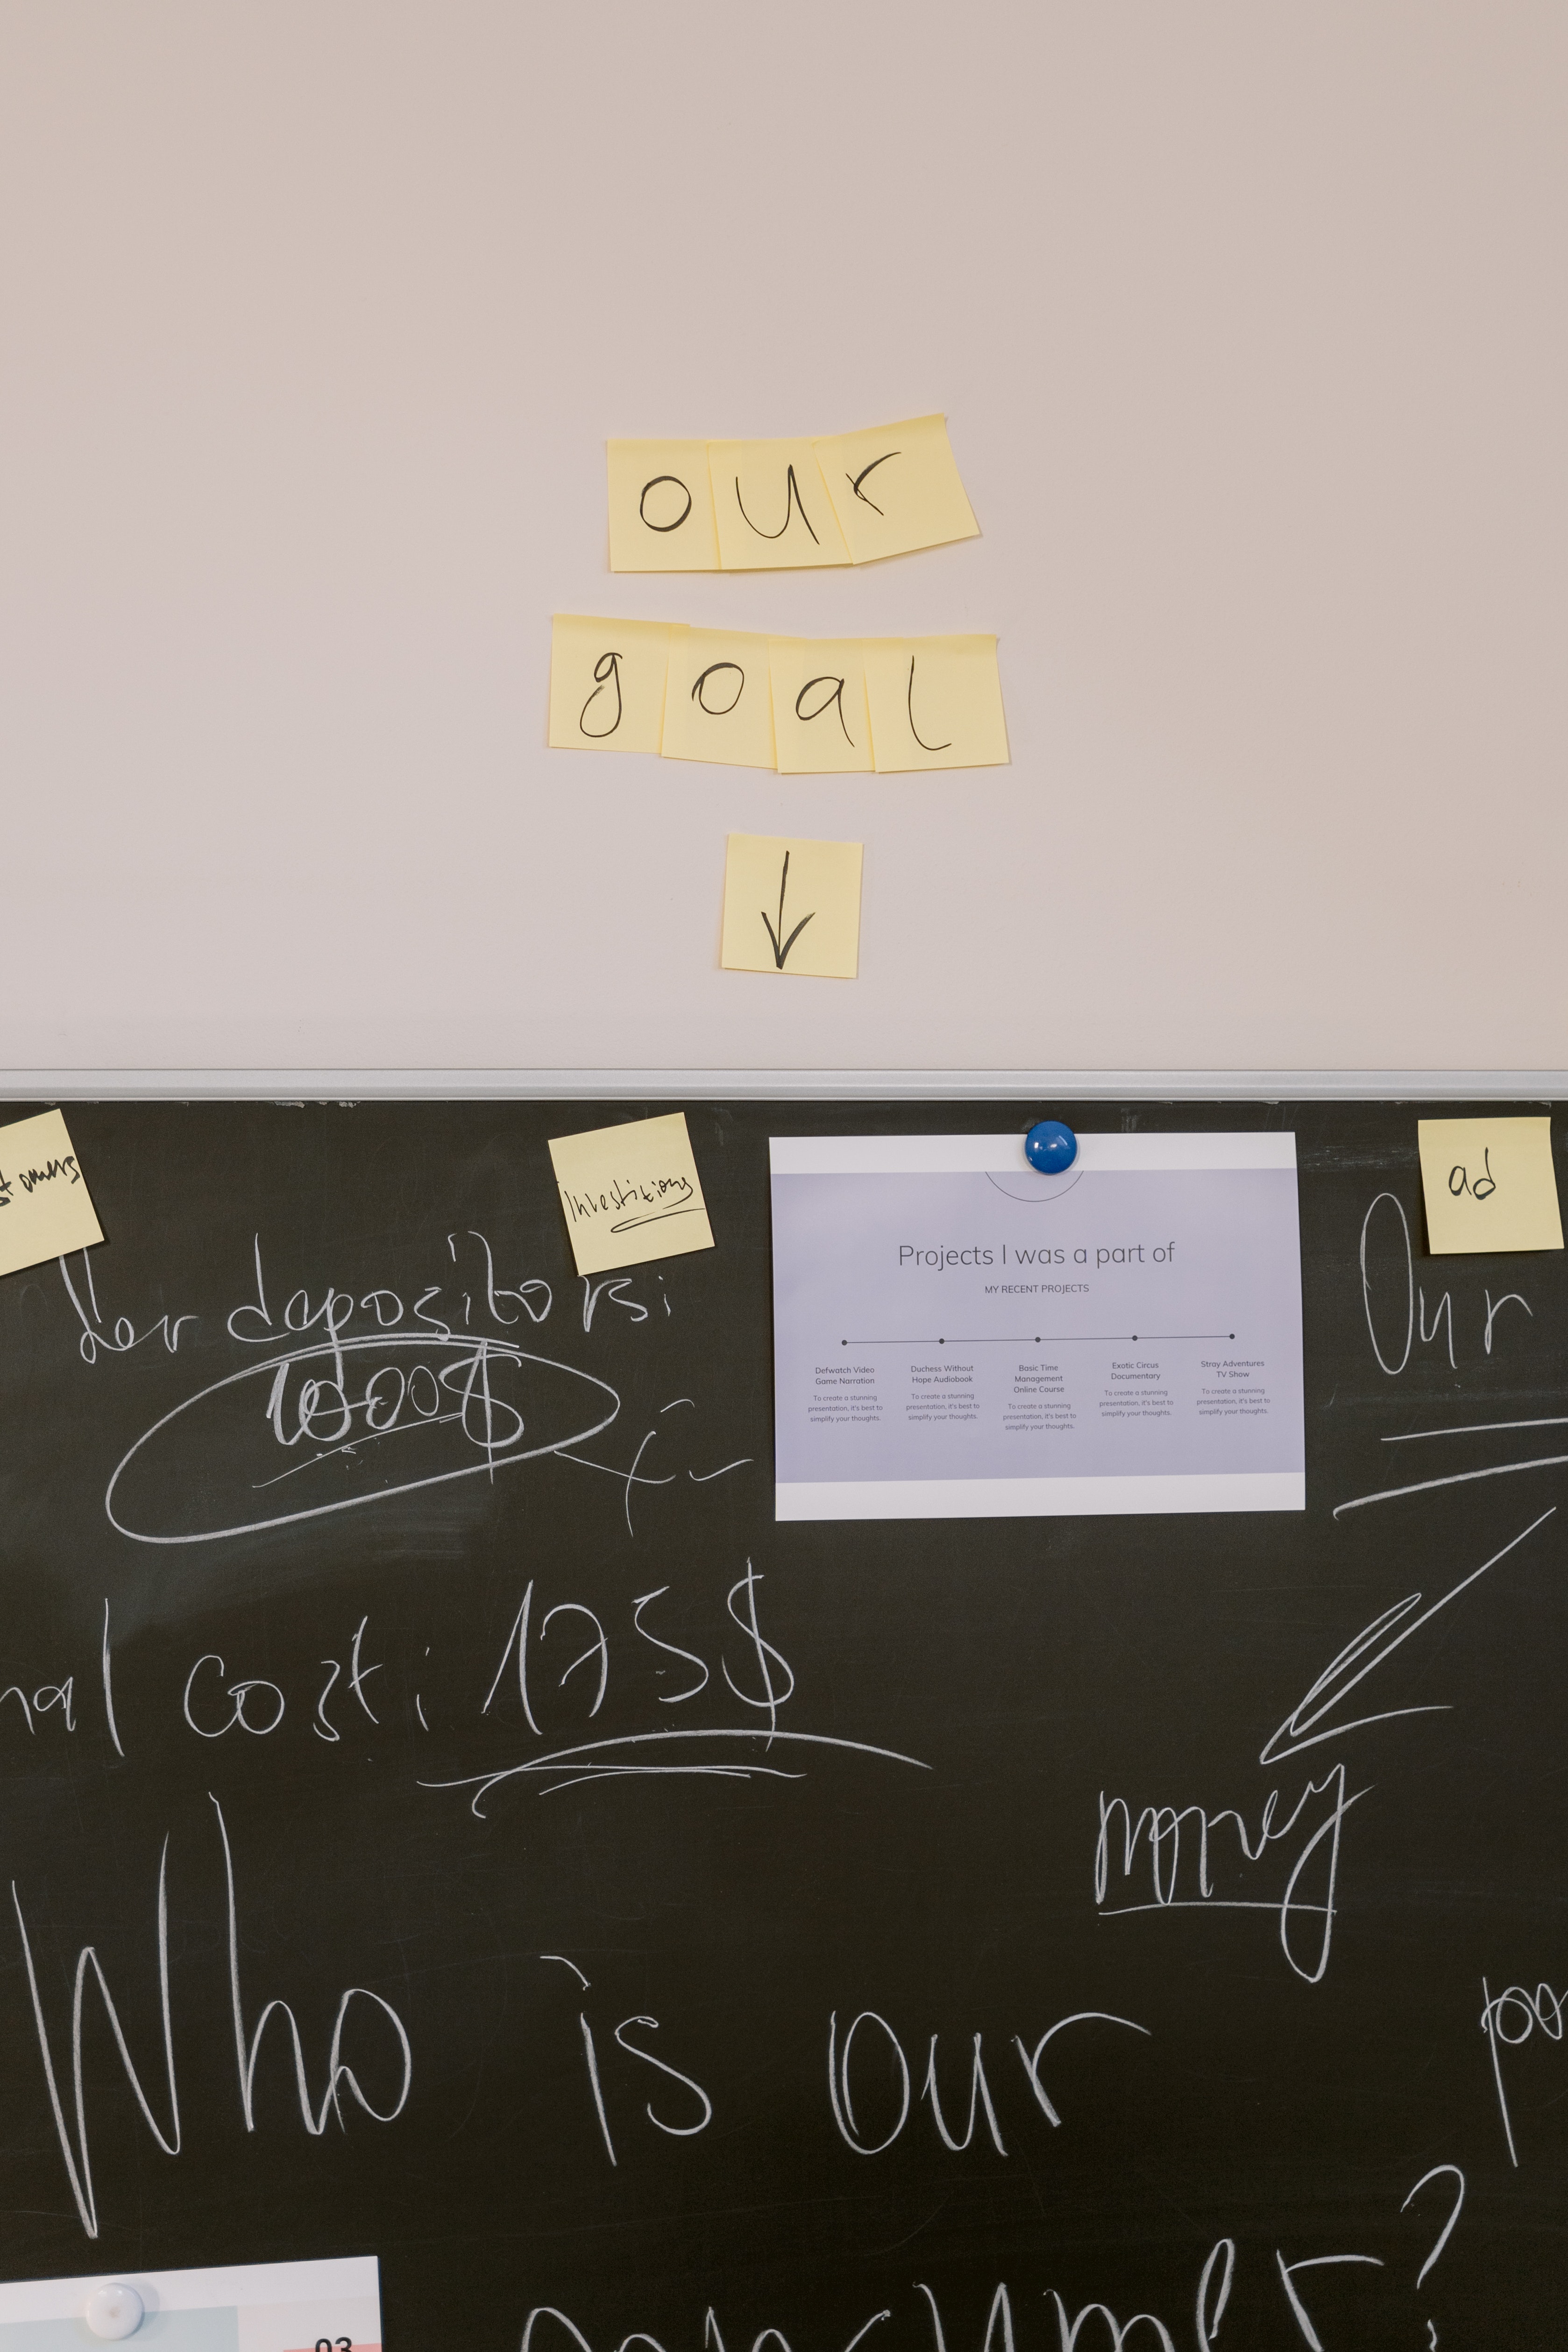 our
goal
↓
Investitions
ad
depositors:
1000$
Projects I was a part of
MY RECENT PROJECTS
Defwatch Video
Game Narration
To create a stunning
presentation, it's best to
simplify your thoughts.
Duchess Without
Hope Audiobook
To create a stunning
presentation, it's best to
simplify your thoughts.
Basic Time
Management
Online Course
To create a stunning
presentation, it's best to
simplify your thoughts.
Exotic Circus
Documentary
To create a stunning
presentation, it's best to
simplify your thoughts.
Stray Adventures
TV Show
To create a stunning
presentation, it's best to
simplify your thoughts.
Our
cost: 175$
money
Who is our
?
03